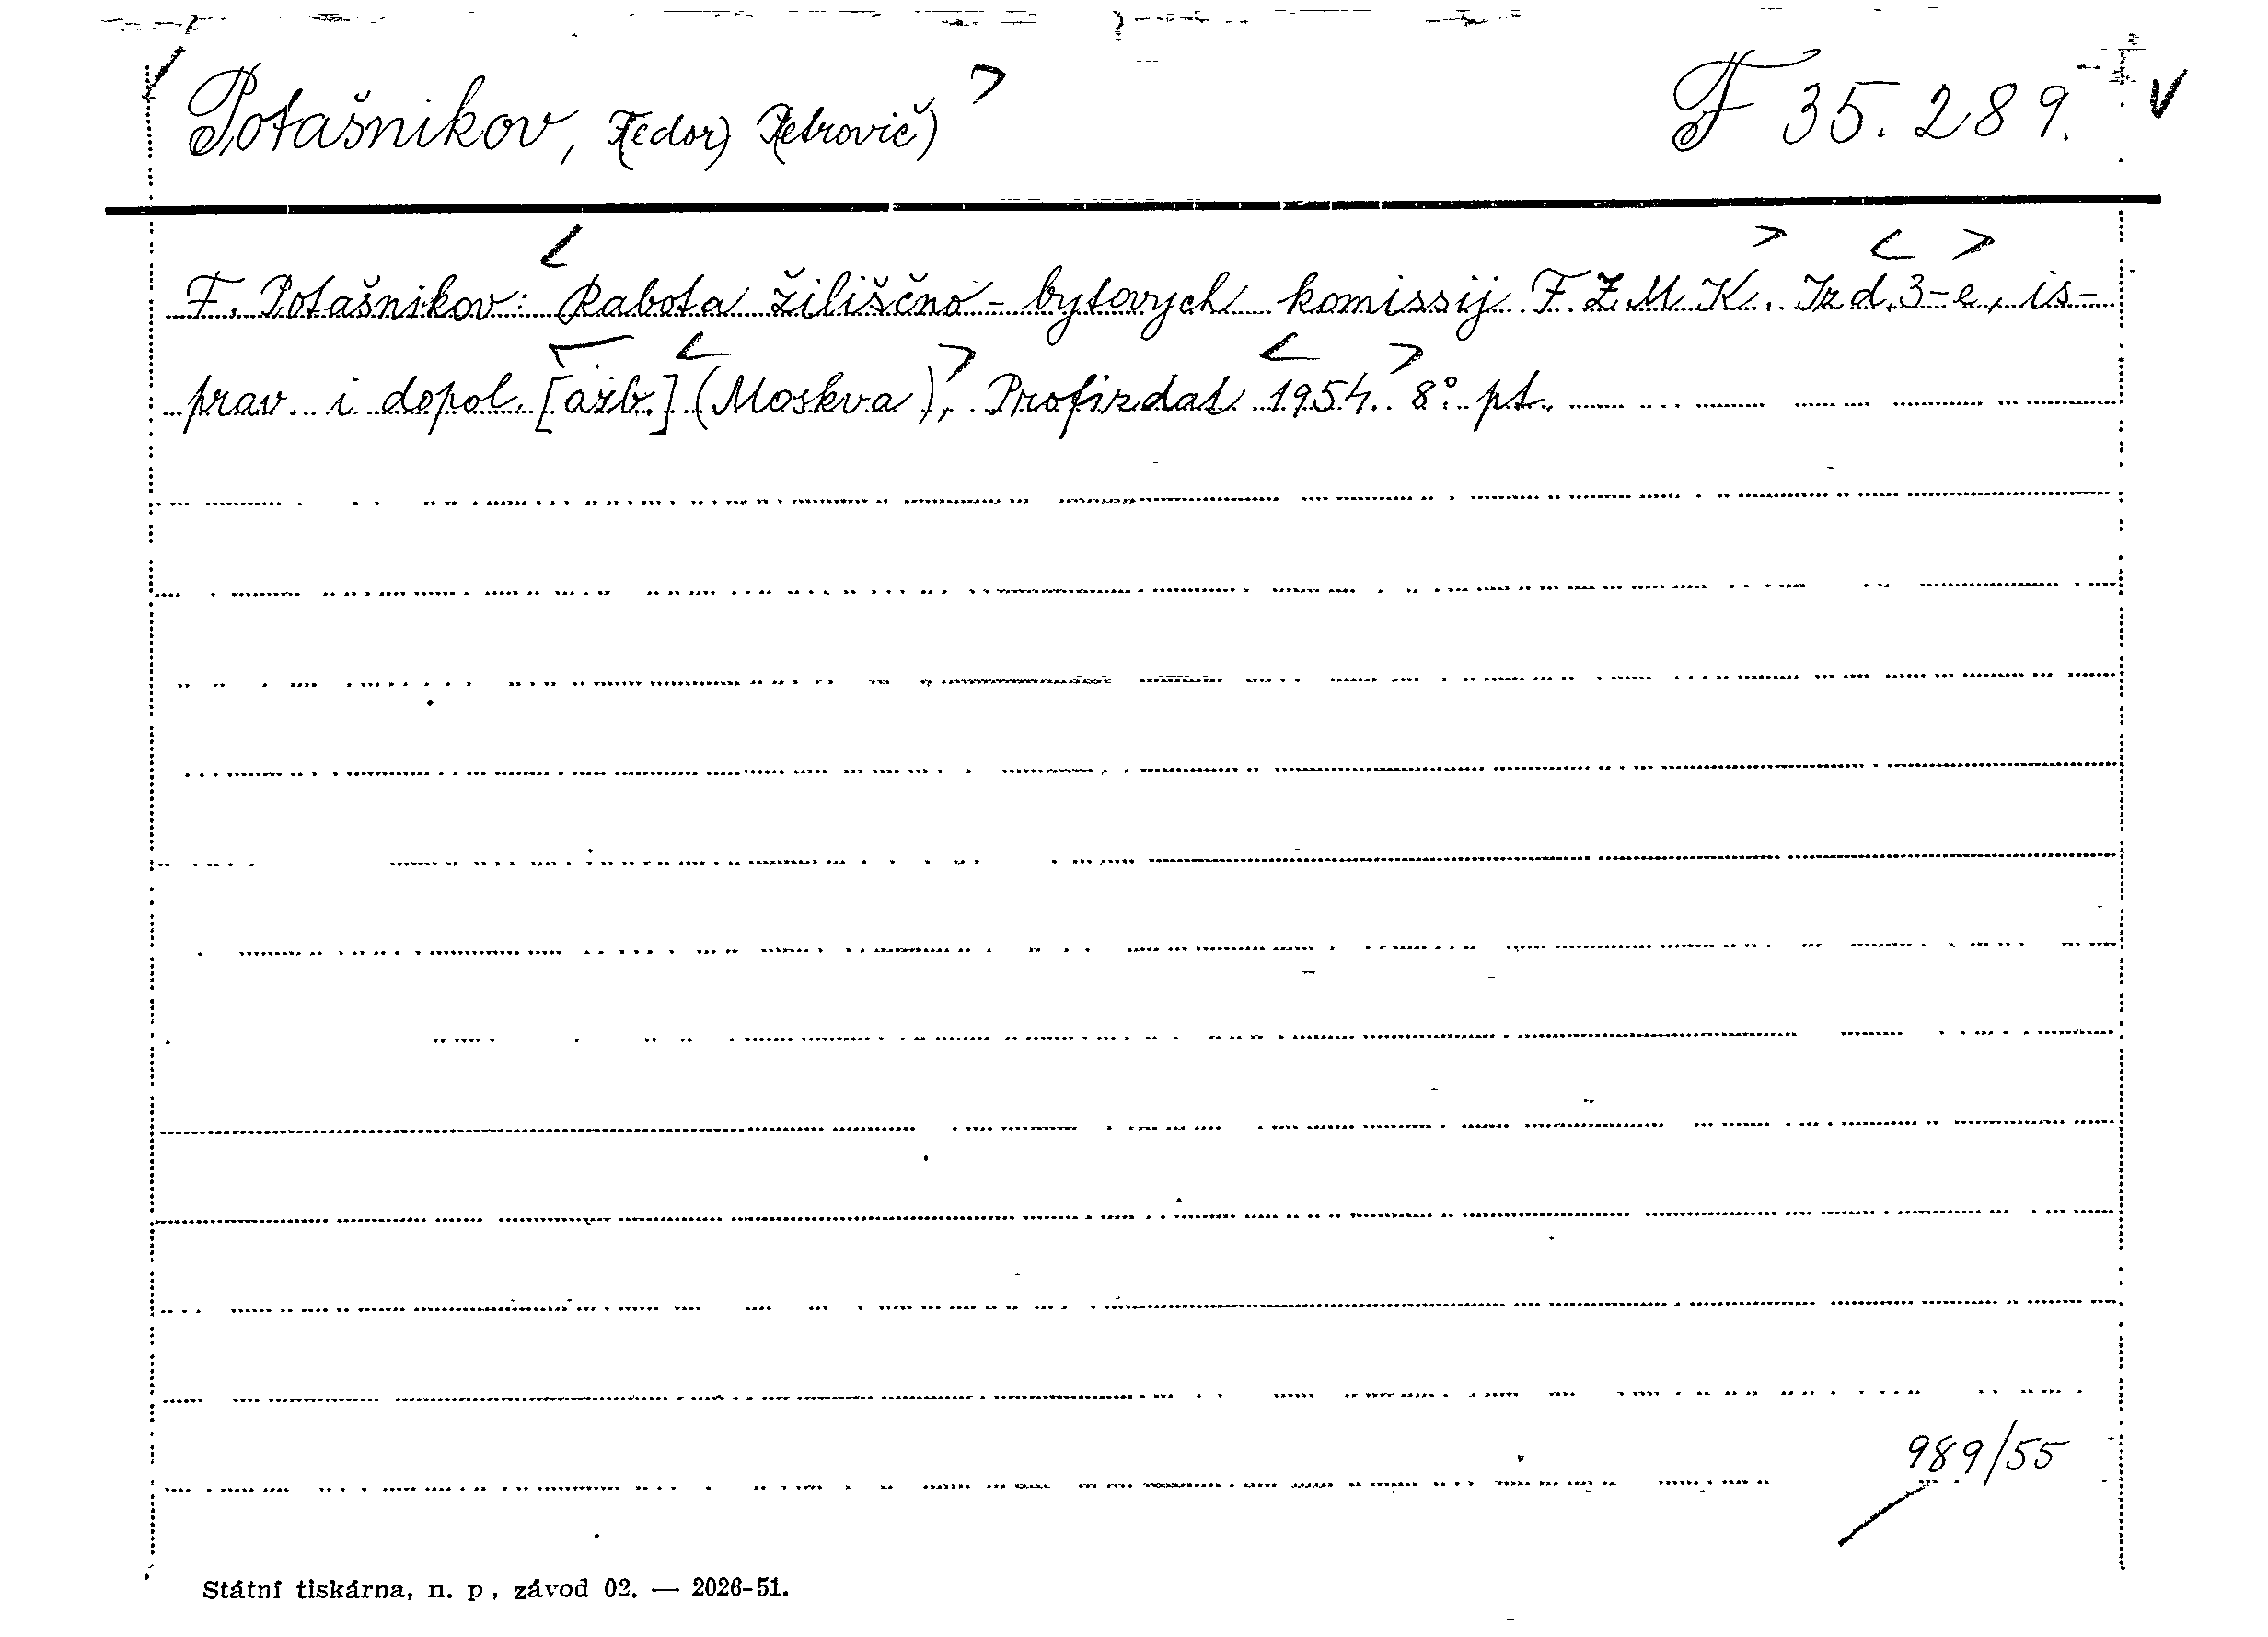 Potašnikov, F(edor) P(etrovič) F 35.289.
F. Potašnikov: Rabota žiliščno-bytovych komissij F.Z.M.K. Izd. 3-e, is-
prav. i dopol. [azb.] (Moskva), Profizdat 1954. 8° pt.
989/55
Státní tiskárna, n. p., závod 02. — 2026-51.